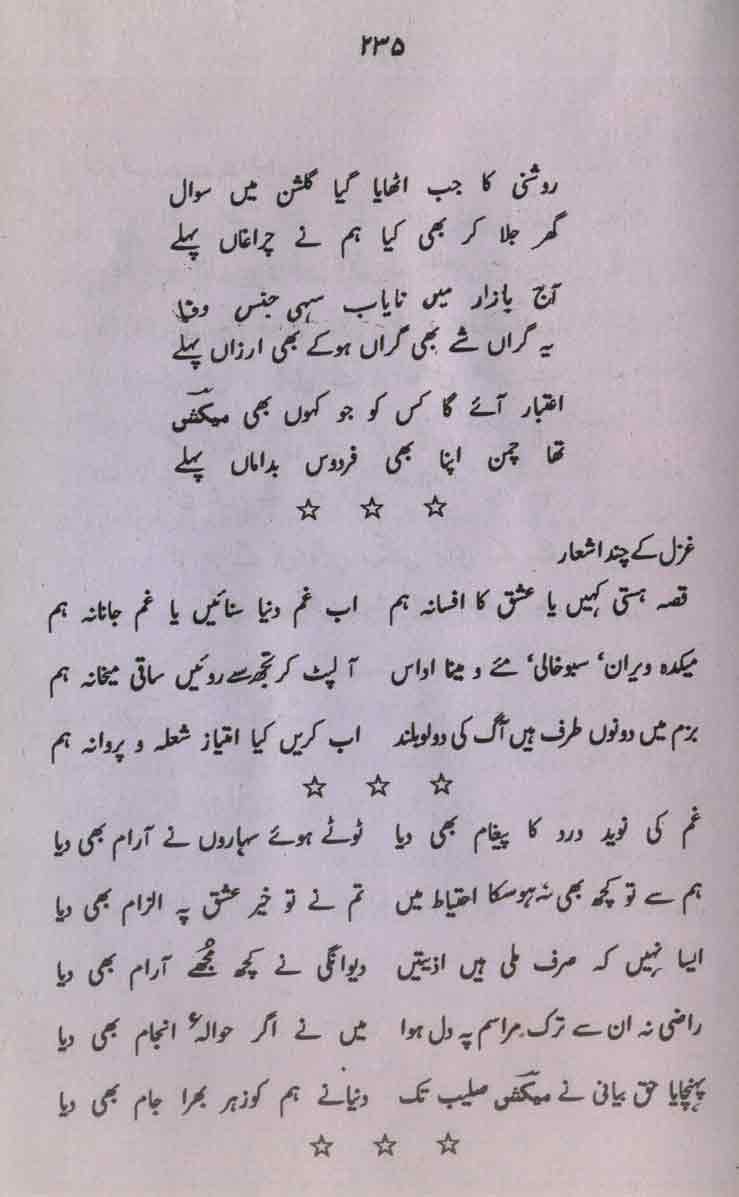 ۲۳۵
روشنی کا جب اٹھایا گیا گلشن میں سوال
گھر جلا کر بھی کیا ہم نے چراغاں پہلے
آج بازار میں نایاب سہی جنس وفا
یہ گراں شے بھی گراں ہوکے بھی ارزاں پہلے
اعتبار آئے گا کس کو جو کہوں بھی میکشؔ
تھا چمن اپنا بھی فردوس بداماں پہلے
☆ ☆ ☆
غزل کے چند اشعار
قصہ ہستی کہیں یا عشق کا افسانہ ہم اب غم دنیا سنائیں یا غم جانانہ ہم
میکدہ ویران، سبو خالی، مئے و مینا اداس آ لپٹ کر تجھ سے روئیں ساقی میخانہ ہم
بزم میں دونوں طرف ہیں آگ کی دولو بلند اب کریں کیا امتیاز شعلہ و پروانہ ہم
☆ ☆ ☆
غم کی نوید درد کا پیغام بھی دیا ٹوٹے ہوئے سہاروں نے آرام بھی دیا
ہم سے تو کچھ بھی نہ ہوسکا احتیاط میں تم نے تو خیر عشق پہ الزام بھی دیا
ایسا نہیں کہ صرف ملی ہیں اذیتیں دیوانگی نے کچھ مُجھے آرام بھی دیا
راضی نہ ان سے ترک مراسم پہ دل ہوا میں نے اگر حوالہء انجام بھی دیا
پہنچایا حق بیانی نے میکشؔ صلیب تک دنیانے ہم کو زہر بھرا جام بھی دیا
☆ ☆ ☆